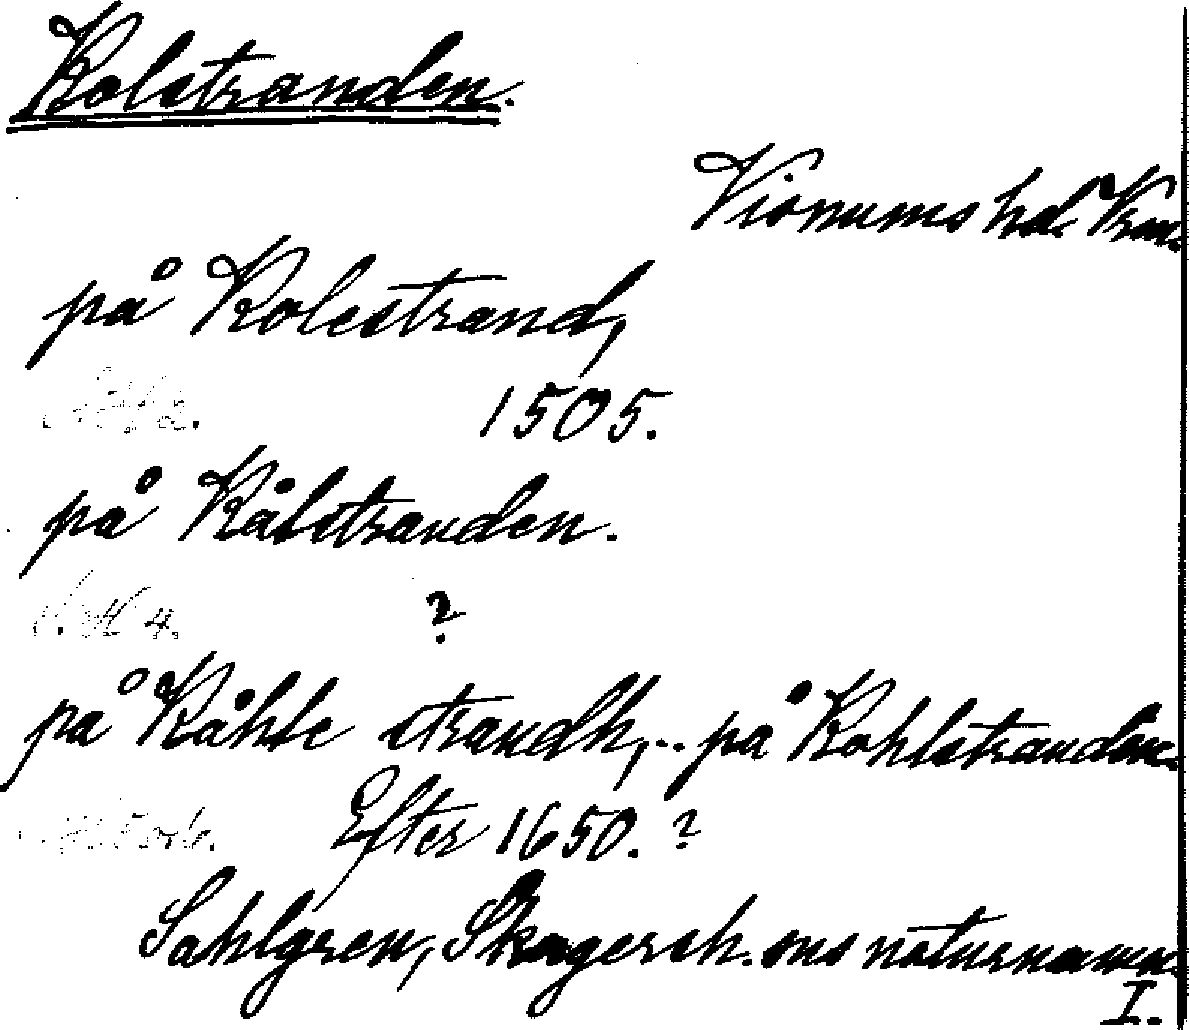 Kolstranden.
Visnums hd. Krm.
på Kolestrand,
1505.
på Kålstranden.
4. ?
på Kåhle strandh, .. på Kohlstranden.
Efter 1650. ?
Sahlgren, Skagersh. sns naturnamn.
I.